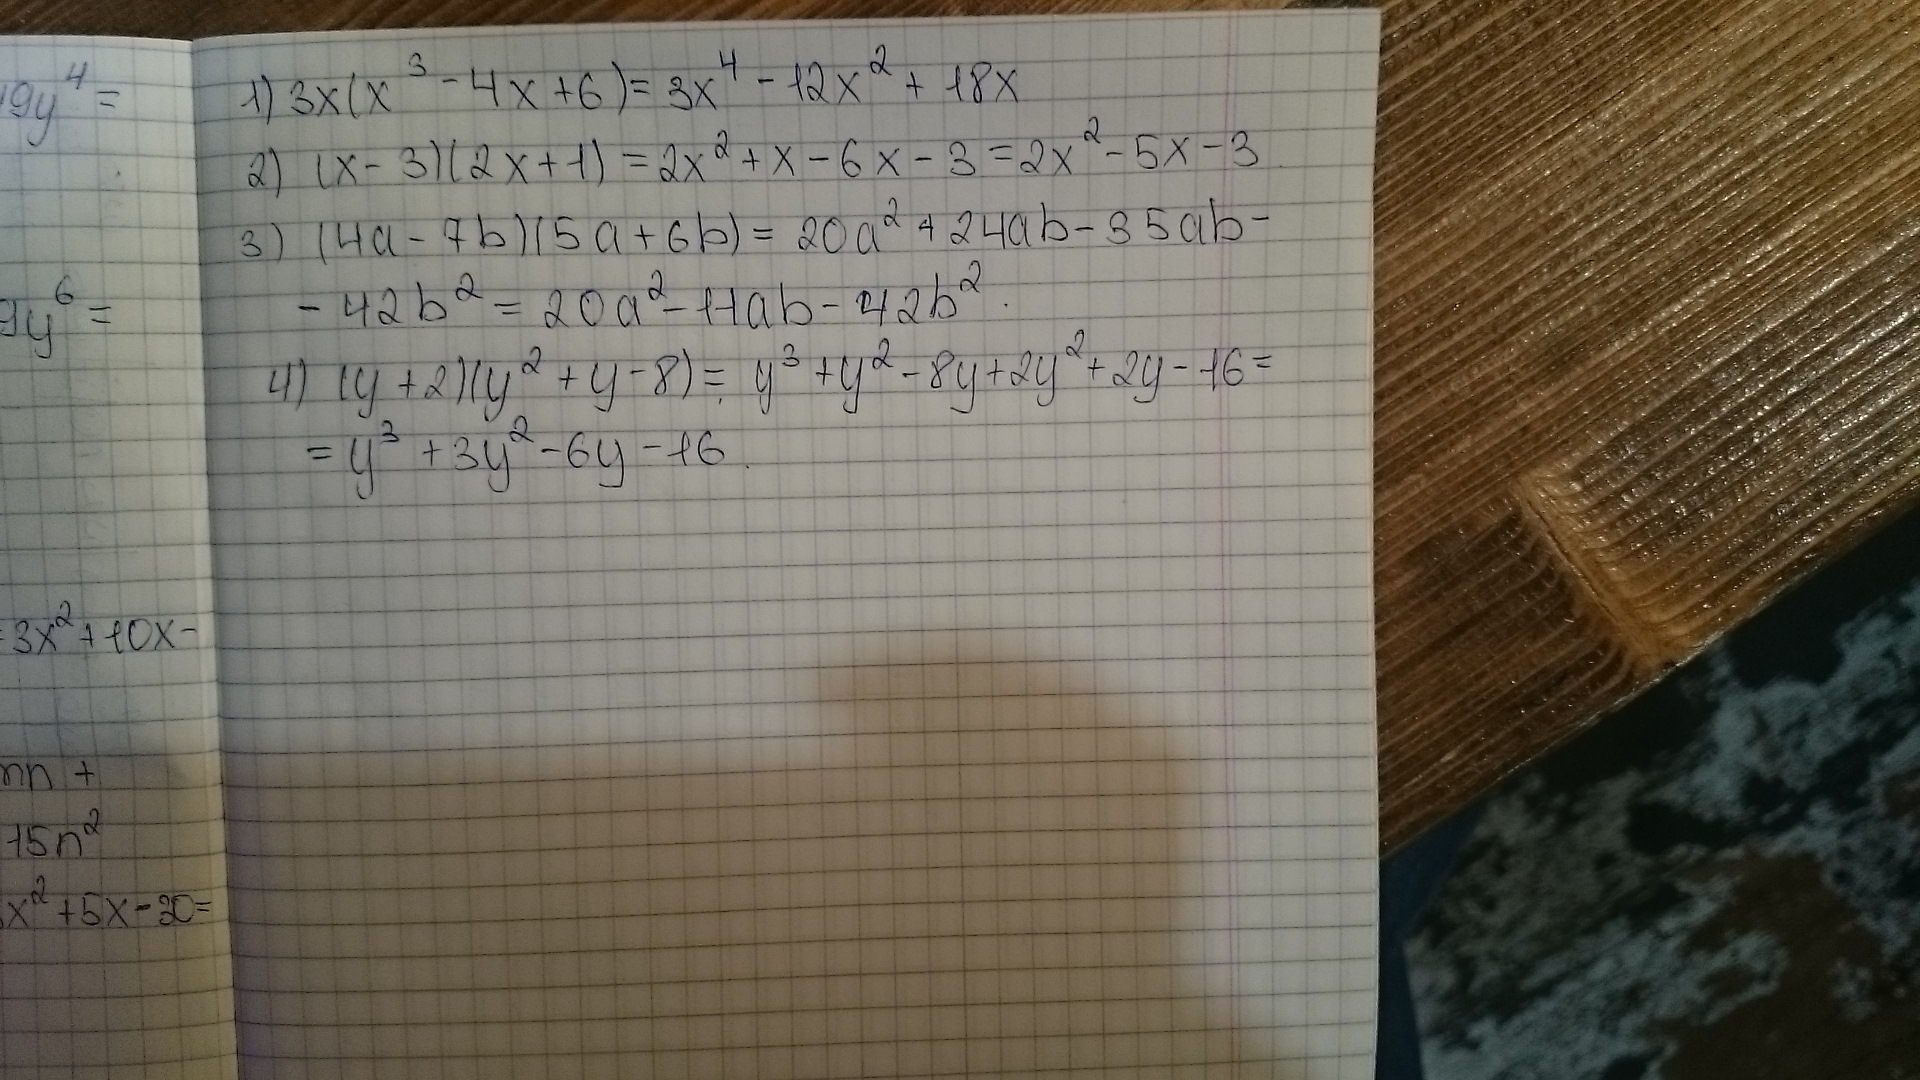 19y⁴ =
9y⁶ =
= 3x² + 10x -
mn +
15n²
x² + 5x - 30 =
1) 3x(x³ - 4x + 6) = 3x⁴ - 12x² + 18x
2) (x - 3)(2x + 1) = 2x² + x - 6x - 3 = 2x² - 5x - 3
3) (4a - 7b)(5a + 6b) = 20a² + 24ab - 35ab -
- 42b² = 20a² - 11ab - 42b².
4) (y + 2)(y² + y - 8) = y³ + y² - 8y + 2y² + 2y - 16 =
= y³ + 3y² - 6y - 16.